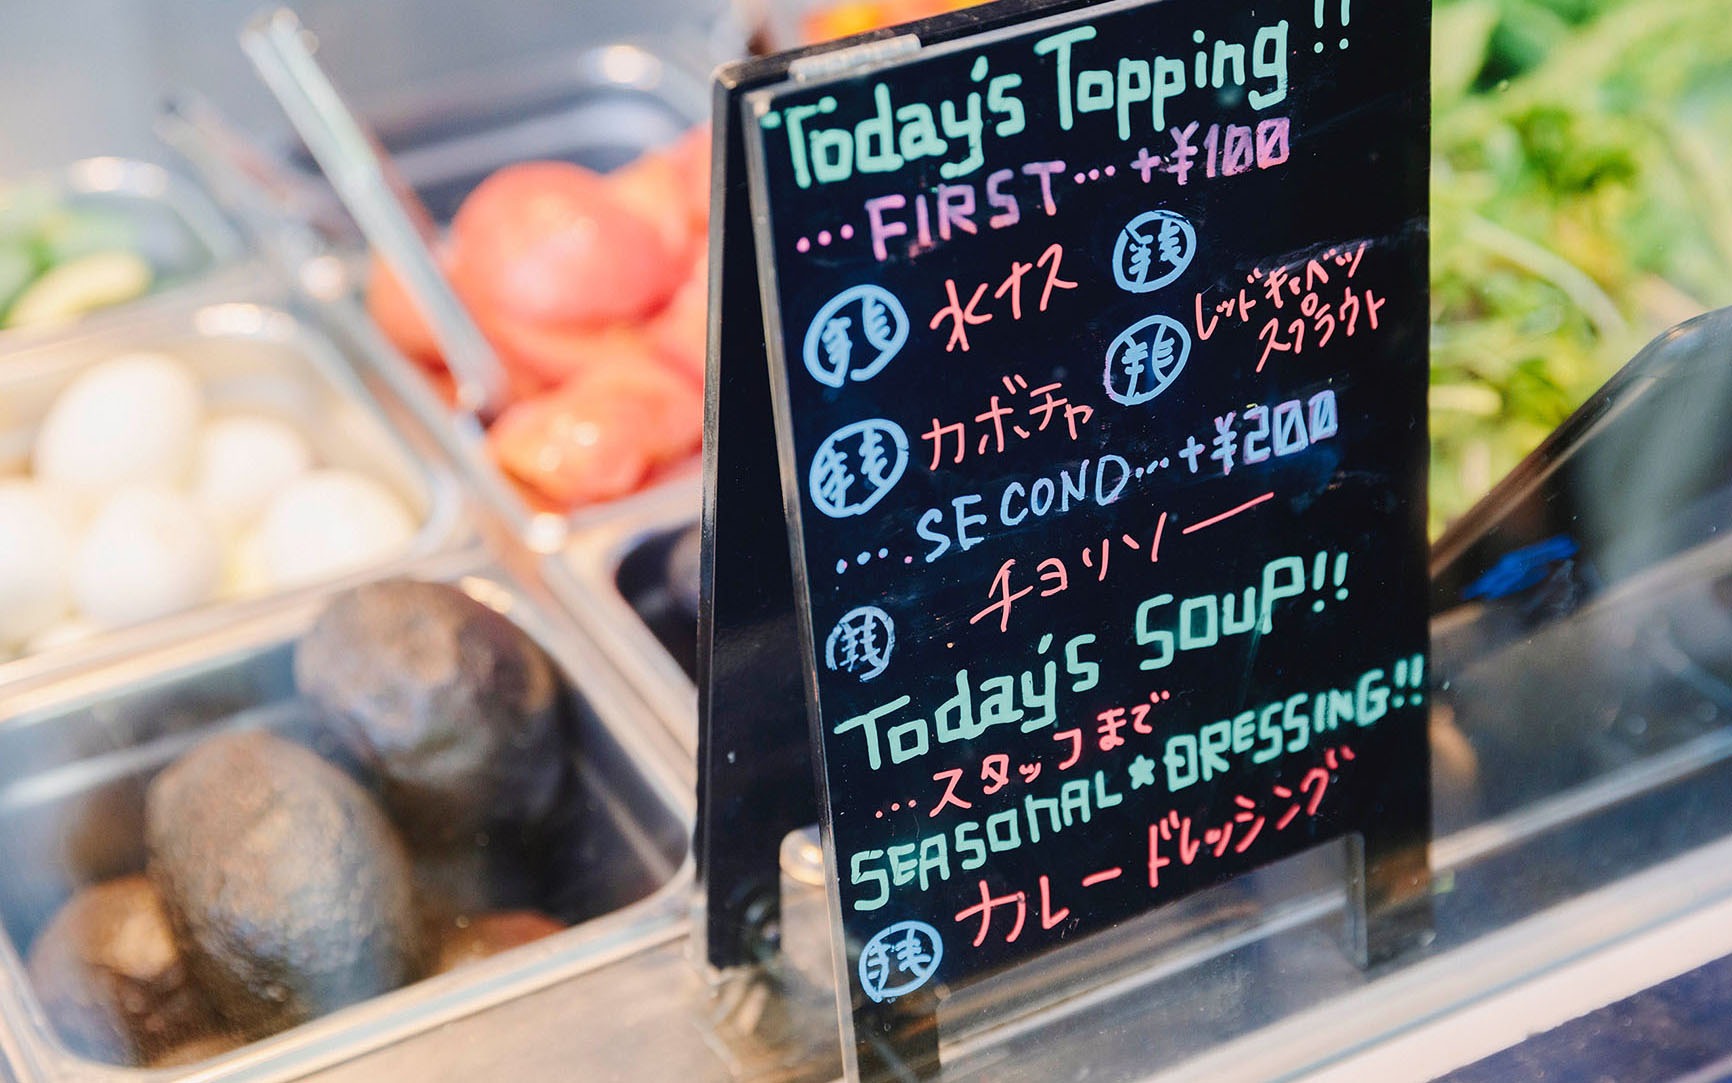 Today's Topping!!
...FIRST...+¥100
水ナス
レッドキャベツ
スプラウト
カボチャ
...SECOND...+¥200
チョリソー
Today's SOUP!!
...スタッフまで
SEASONAL★DRESSING!!
カレードレッシング